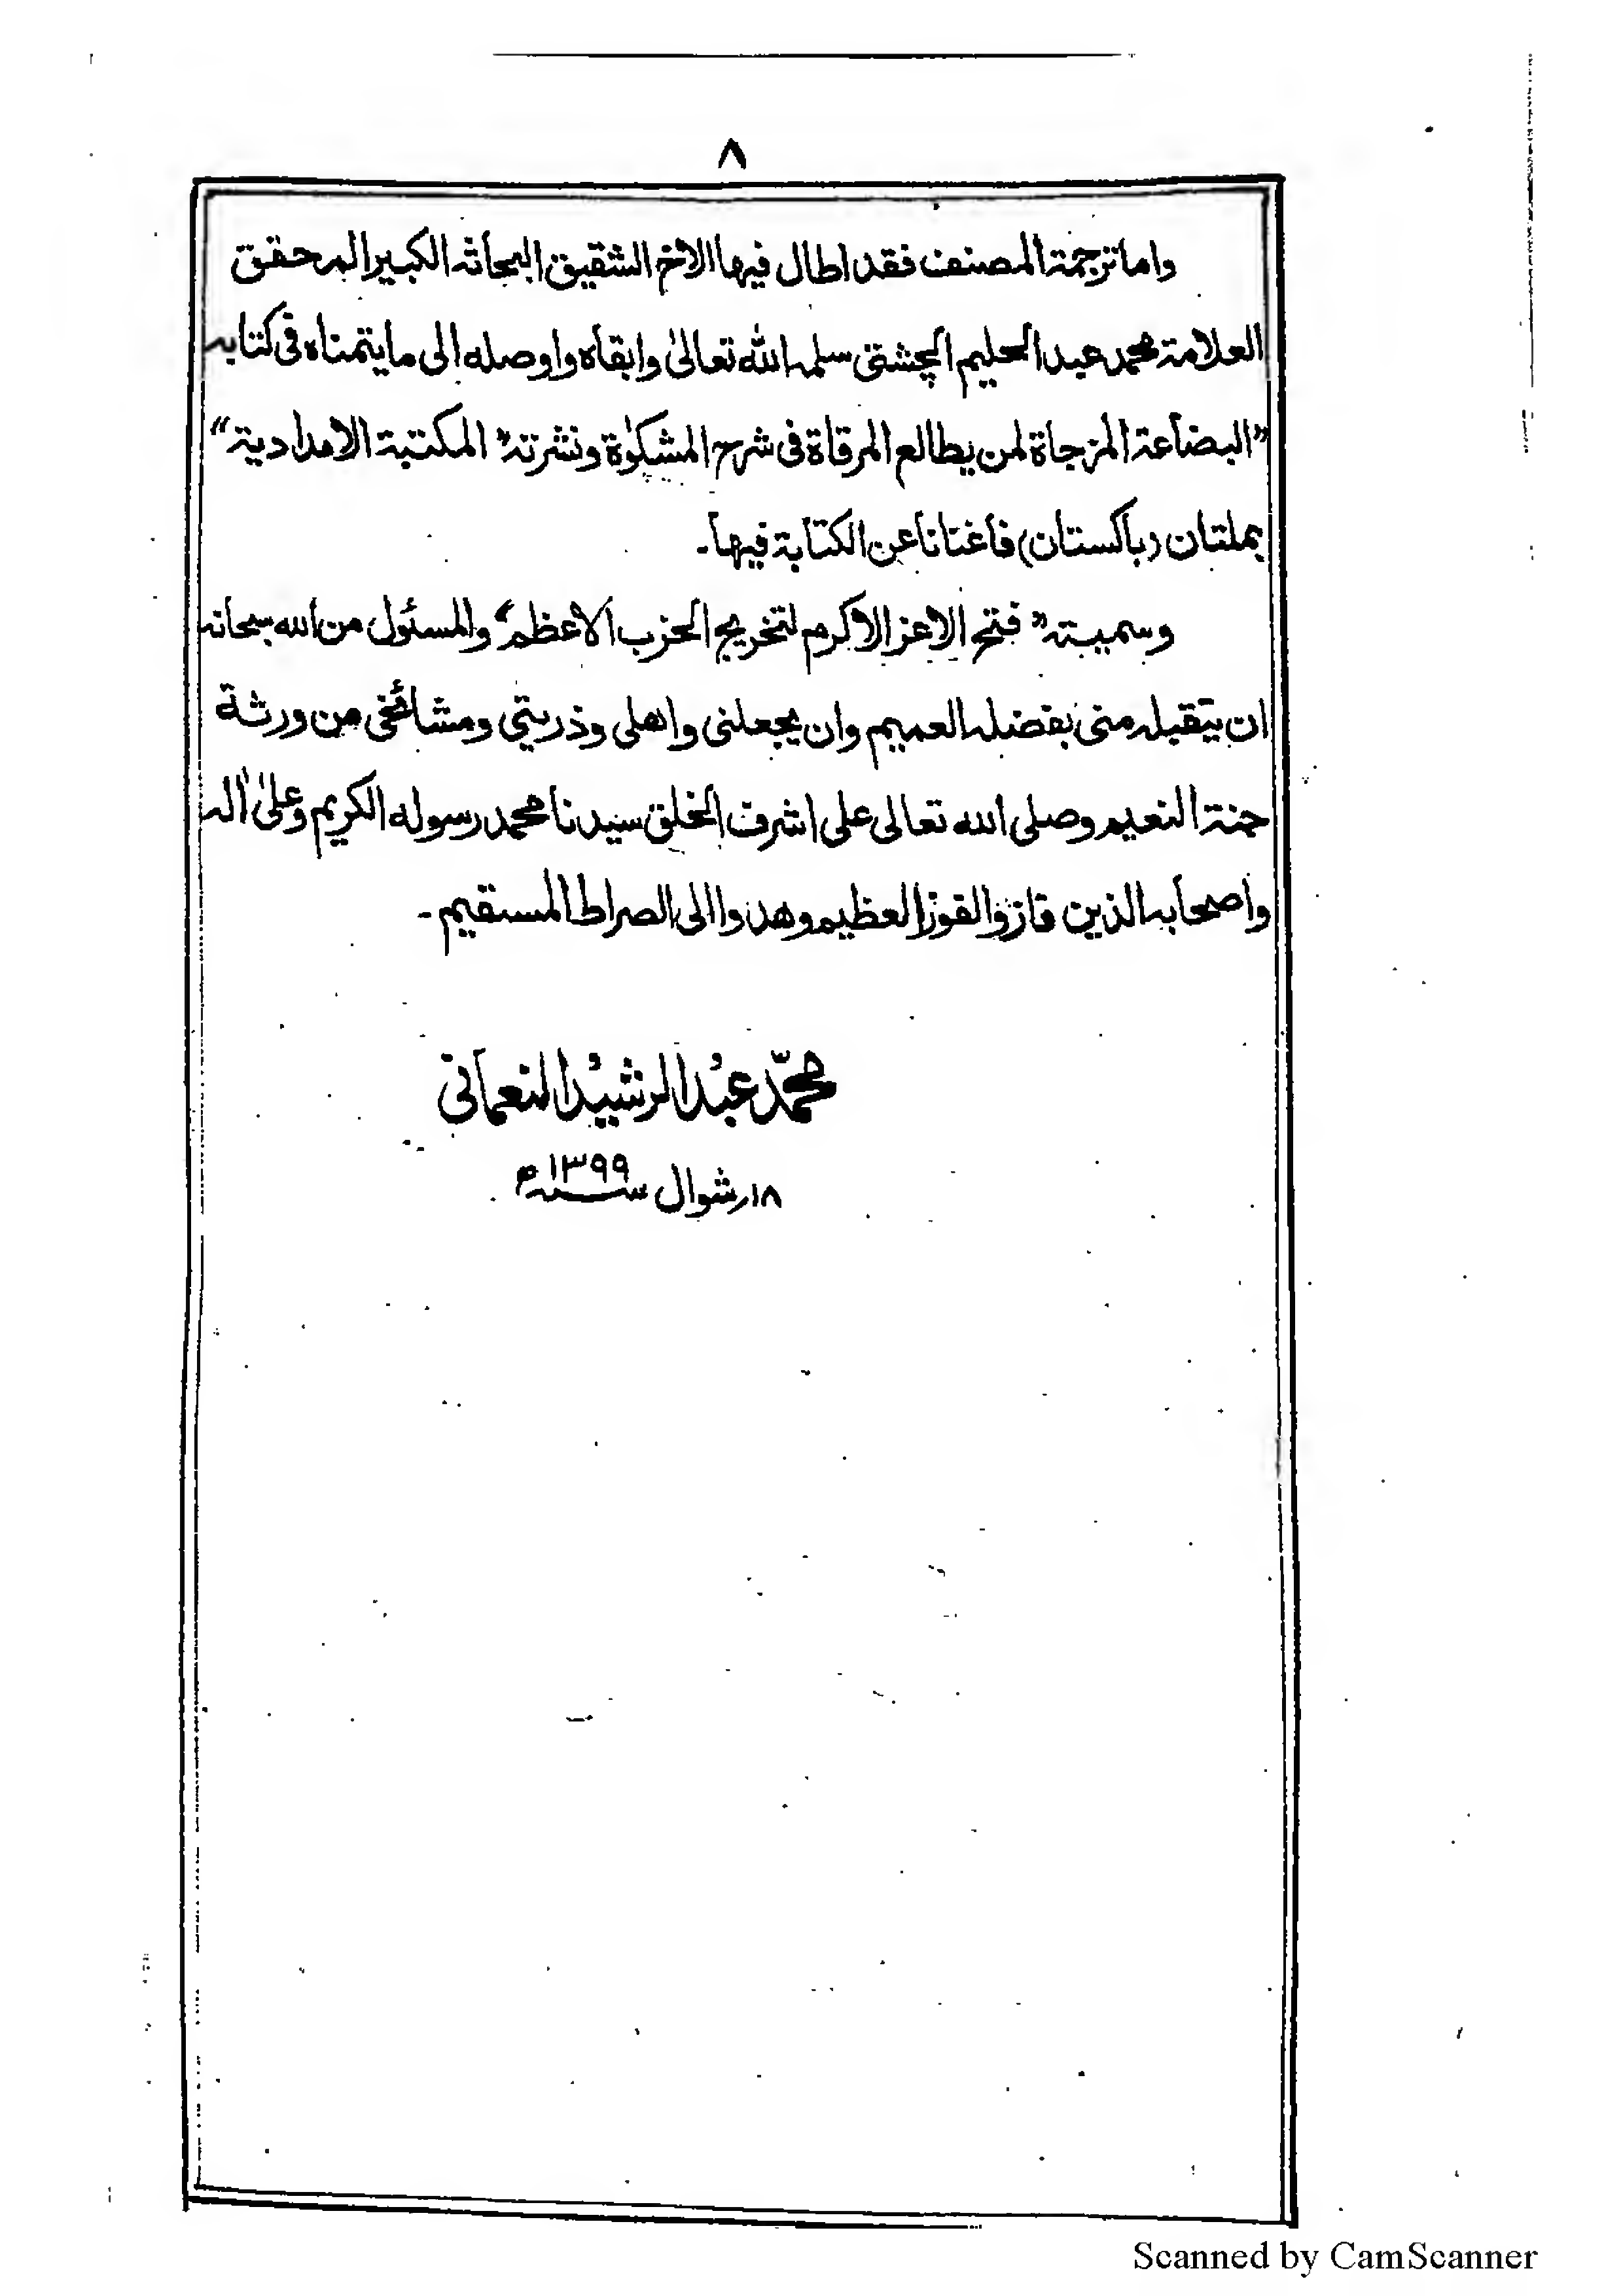 ٨
واما ترجمة المصنف فقد اطال فيها الاخ الشقيق البحاثه الكبير المحقق
العلامة محمد عبد الحليم الچشتى سلمه الله تعالىٰ وابقاه واوصله الى ما يتمناه فى كتابه
”البضاعة المزجاة لمن يطالع المرقاة فى شرح المشكوٰة ونشرته ”المكتبة الامدادية“
بملتان (باكستان) فأغنانا عن الكتابة فيها۔
وسميته ”فتح الاعز الاكرم لتخريج الحزب الاعظم“ والمسئول من الله سبحانه
ان يتقبله منى بفضله العميم وان يجعلنى واهلى وذريتي ومشائخى من ورثة
جنة النعيم وصلى الله تعالى على اشرف الخلق سيدنا محمد رسوله الكريم وعلىٰ اٰله
واصحابه الذين فازوا الفوز العظيم وهدوا الى الصراط المستقيم۔
محمّد عبُد الرشيُد النعمانى
١٨ر شوال سنه ١٣٩٩ م
Scanned by CamScanner